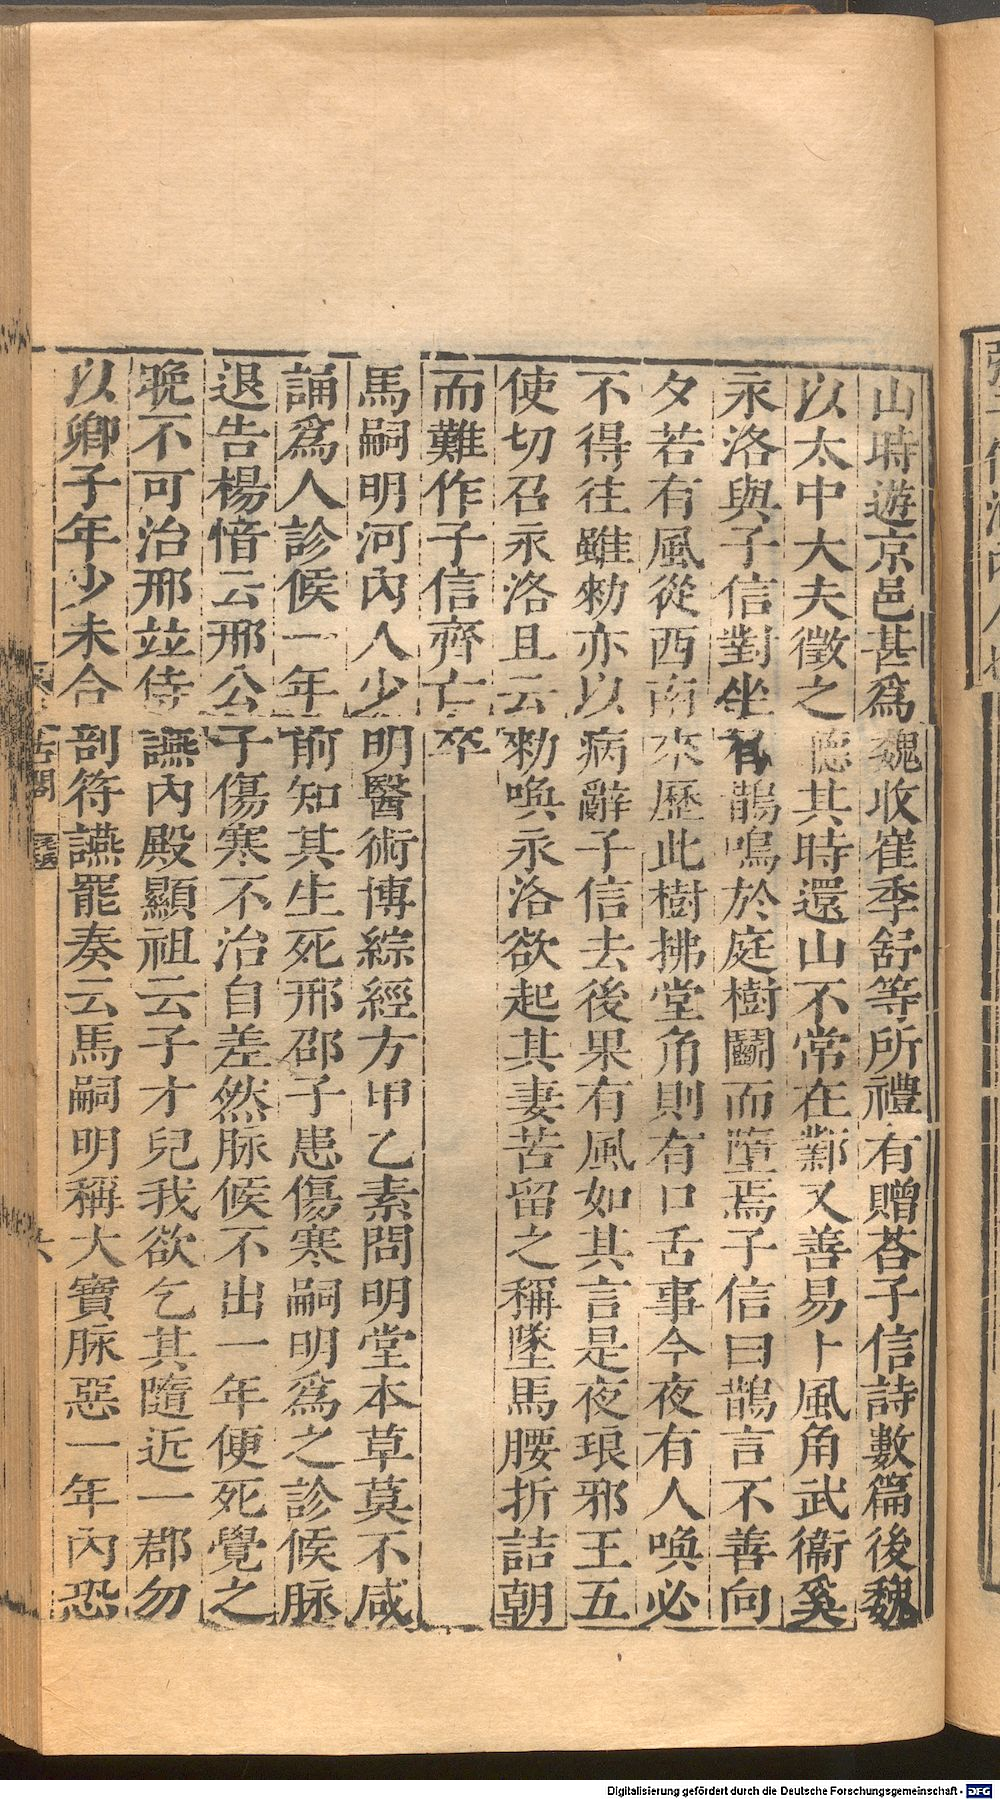 山時遊京邑甚為魏收崔季舒等所禮有贈荅子信詩數篇後魏
以太中大夫徵之聽其時還山不常在鄴又善易卜風角武衞奚
永洛與子信對坐有鵲鳴於庭樹鬬而墮焉子信曰鵲言不善向
夕若有風從西南來歷此樹拂堂角則有口舌事今夜有人喚必
不得往雖勑亦以病辭子信去後果有風如其言是夜琅邪王五
使切召永洛且云勑喚永洛欲起其妻苦留之稱墜馬腰折詰朝
而難作子信齊亡卒
馬嗣明河內人少明醫術博綜經方甲乙素問明堂本草莫不咸
誦爲人診候一年前知其生死邢邵子患傷寒嗣明爲之診候脉
退告楊愔云邢公子傷寒不治自差然脉候不出一年便死覺之
晚不可治邢竝侍讌內殿顯祖云子才兒我欲乞其隨近一郡勿
以卿子年少未合剖符讌罷奏云馬嗣明稱大寶脉惡一年內恐
Digitalisierung gefördert durch die Deutsche Forschungsgemeinschaft - DFG